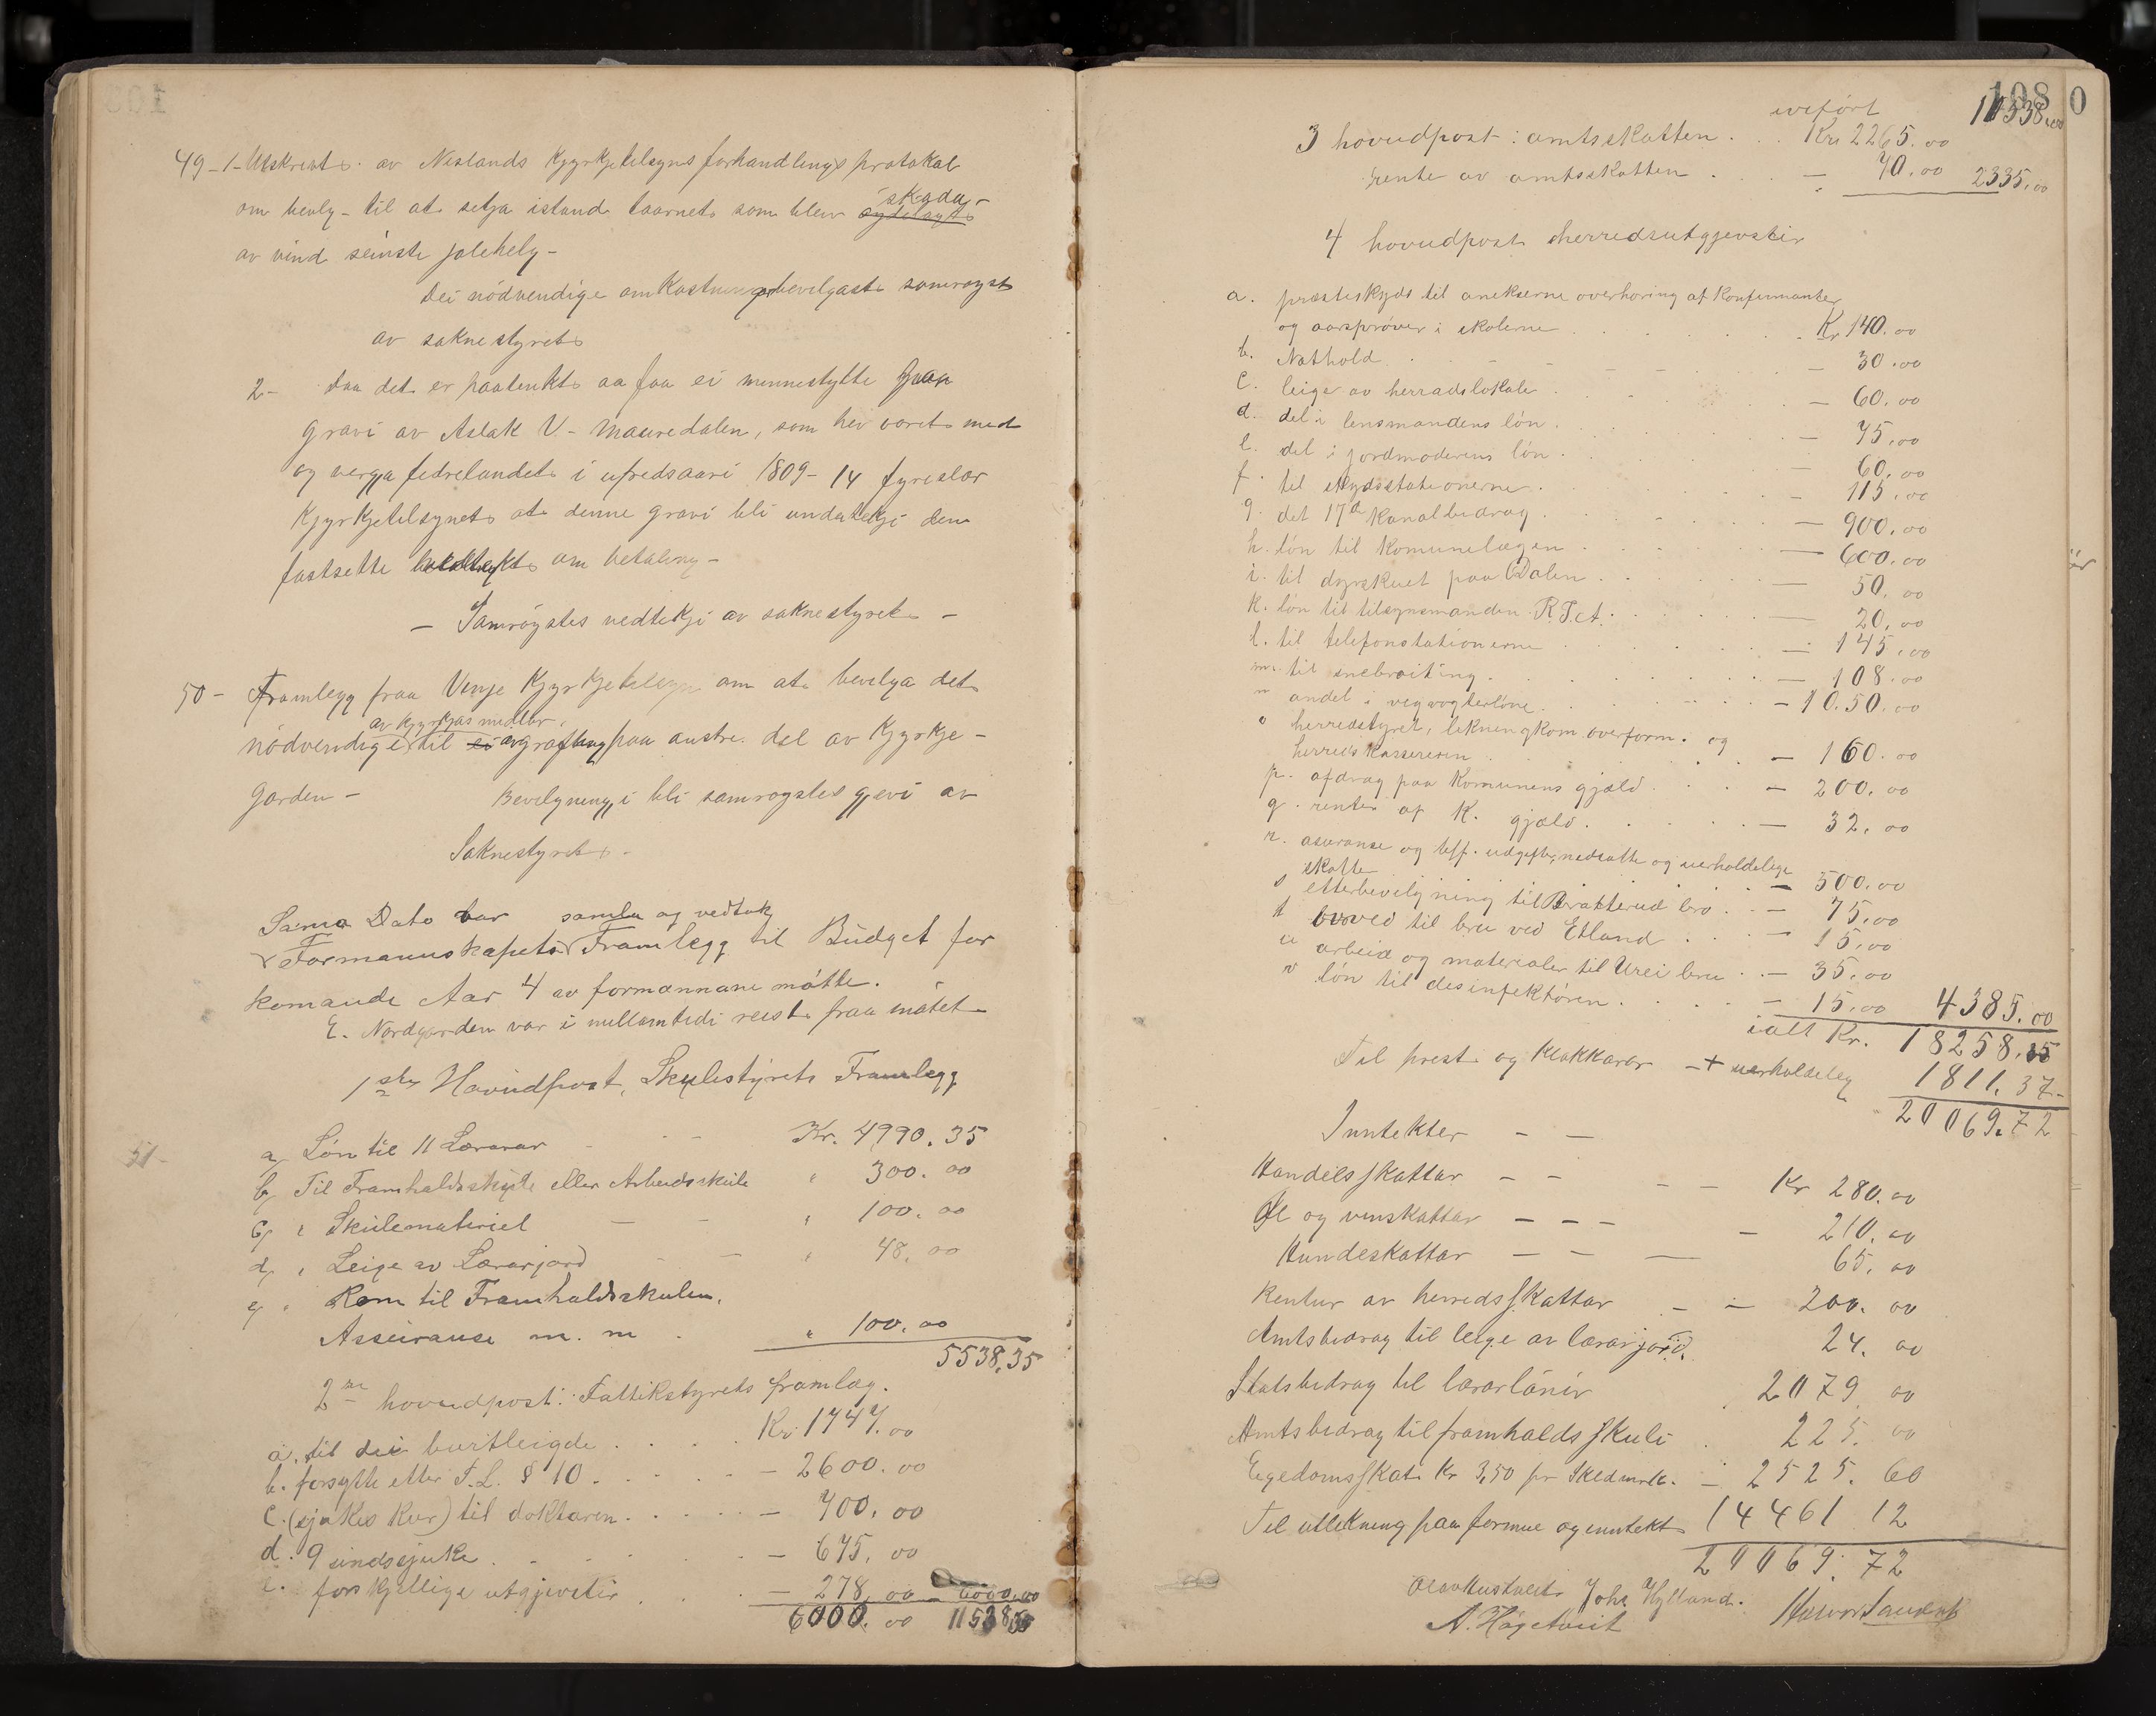 49-1- Utskrivt av Neslands Kjyrkjetilsyns forhandlings protokol
om bevlg- til at setja istand taarnet som blev ødelagt skada-
av vind seinste jolehelg-
Dei nödvendige omkostningar bevilgast samrøyst
av saknestyret
2- Daa det er paatenkt aa faa ei minnestytte paa
gravi av Aslak V- Mauredalen, som hev voret med
og verja fedrelandet i ufredsaari 1809-14 fyreslær
Kjyrkjetilsynet at denne gravi bli undateki den
fastsette vedtekt om betaling-
- Samröystes vedtekji av saknestyret -
50- Framlegg fraa Vinje Kjyrkjetilsyn om at bevilga det
av kjyrkjas midlar.
nödvendige til ei avgrøfting paa austre del av Kjyrkje-
garden- Bevilgningi bli samrøystes gjevi av
Saknestyret.
Sama Dato var samla og vedtok
Formannskapets Framlegg til Büdget for
komande Aar 4 av formannane mötte.
E. Nordgarden var i millomtidi reist fraa mötet
1ste Hovudpost, Skulestyrets Framlegg
51-
a, Lön til 11 Lærarar - - Kr. 4990.35
b, Til Framhaldsskule eller Arbeidsskule " 300.00
c, " Skülemateriel - - " 100.00
d, " Leige av Lærarjord - " 48.00
e, " Rom til Framhaldsskulen,
Asseurause m. m . " 100.00
5538,35
2re hovudpost: Fattikstyrets framlag.
a. til dei burtleigde . . . . Kr. 1747.00
b. forsytte etter F.L. § 10 . . . . - 2600.00
c. (sjukes kur) til doktaren . . . . - 700.00
d. 9 sindssjuke . . . . - 675.00
e. forskjellige utgjevster . . - 278.00 - 6000.00
6000.00 11538,35
108 0
ovefört 11538,35
3 hovudpost: amtsskatten . . Kr. 2265.00
rente av amtsskatten . . - 70.00 2335.00
4 hovudpost herredsutgjevster
a. præsteskyds til anekserne overhøring af konfirmanter
og aarsprøver i skolerne . . . . Kr 140.00
b. Nothold . . - 30.00
c. leige av herradslokale . . - 60.00
d. del i lensmandens løn . . - 75.00
e. del i jordmoderens løn . . - 60.00
f. til skydsstationerne . . - 115.00
g. det 17de kanalbidrag . . - 900.00
h. løn til Komunelægen . . - 600.00
i. til dyrskuet paa Dalen . . - 50.00
k. løn til tilsynsmanden R.T.A. . . - 20.00
l. til telefonstationerne . . - 145.00
m. til snebroiting . . - 108.00
n andel i vegvogterløne . . - 10.50.00
o herredstyret, likningkom. overform. og
herreds Kassereren . . - 160.00
p. afdrag paa Komunens gjæld . . - 200.00
q. renter af K. gjæld . . - 32.00
r. asurance og tilf. udgifter, nedsatte og uerholdelege
skatter - 500.00
s etterbevilgning til Brakterud bro . . - 75.00
t busved til bru ved Etland . . - 15.00
u arbeid og materialer til Urei bru . . - 35.00
v løn til desinfektøren . . . . - 15.00 4385.00
ialt Kr. 18258,35
Til prest og Klokkarar -+ uerholdeleg 1811.37-
20069.72
Inntekter - -
Handelsskattar - - - - Kr 280.00
Øl og vinskattar - - - - 210.00
Hundeskattar - - - 65.00
Rentur av herredsskattar - - 200.00
Amtsbidrag til leige av lærarjord. 24.00
Statsbidrag til lærarlönir 2079.00
Amtsbidrag til framhaldsskuli . 225.00
Eigedomsskat Kr 3,50 pr Skldmrk. - 2525.60
Til utlikning paa formue og inntekt 14461 12
20069.72
Olav Hustveit Johs Hylland. Halvor Sauensk
A. Høgetveit